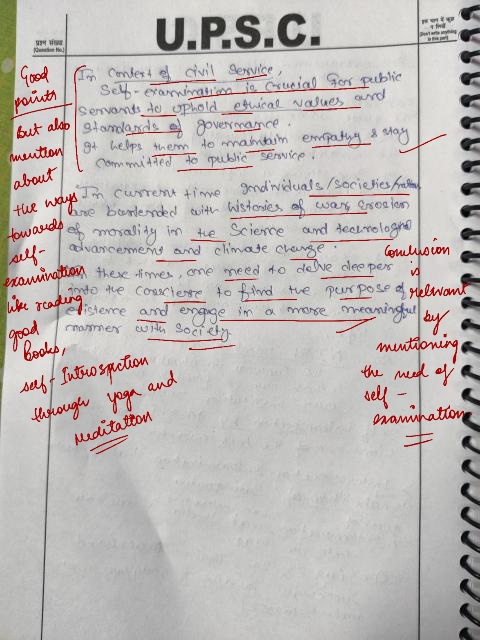 प्रश्न संख्या
(Question No.)
U.P.S.C.
इस भाग में कुछ
न लिखें
(Don't write anything
in this part)
In context of civil service,
Self-examination is crucial for public
servants to uphold ethical values and
standards of governance.
It helps them to maintain empathy & stay
committed to public service.
In current time individuals/societies/nation
are burdened with histories of war, erosion
of morality in the science and technological
advancement and climate change.
In these times, one need to delve deeper
into the conscience to find the purpose of
existence and engage in a more meaningful
manner with society
Good
points
But also
mention
about
the ways
towards
self-
examination
like reading
good
Books,
self-Introspction
through yoga and
meditatton
Conclusion
is
relevant
by
mentioning
the need of
self-
examination